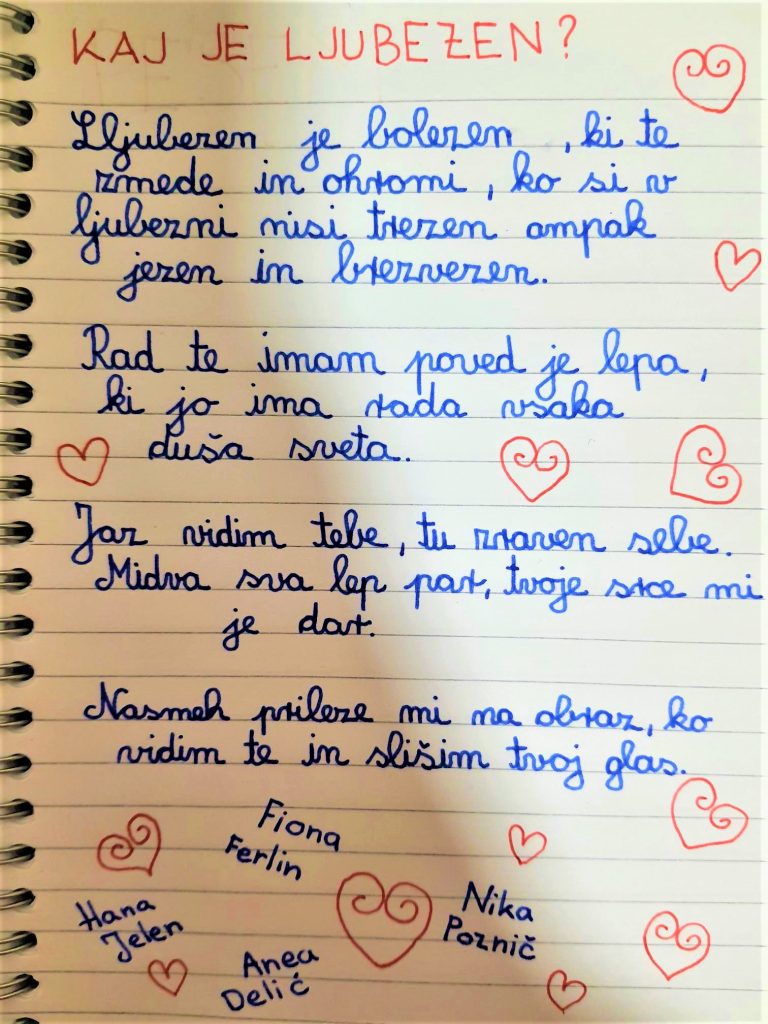 KAJ JE LJUBEZEN?
Lljubezen je bolezen, ki te
zmede in ohromi, ko si v
ljubezni nisi trezen ampak
jezen in brezvezen.
Rad te imam poved je lepa,
ki jo ima rada vsaka
duša sveta.
Jaz vidim tebe, tu zraven sebe.
Midva sva lep par, tvoje srce mi
je dar.
Nasmeh prileze mi na obraz, ko
vidim te in slišim tvoj glas.
Fiona
Ferlin
Hana
Jelen
Anea
Delić
Nika
Poznič